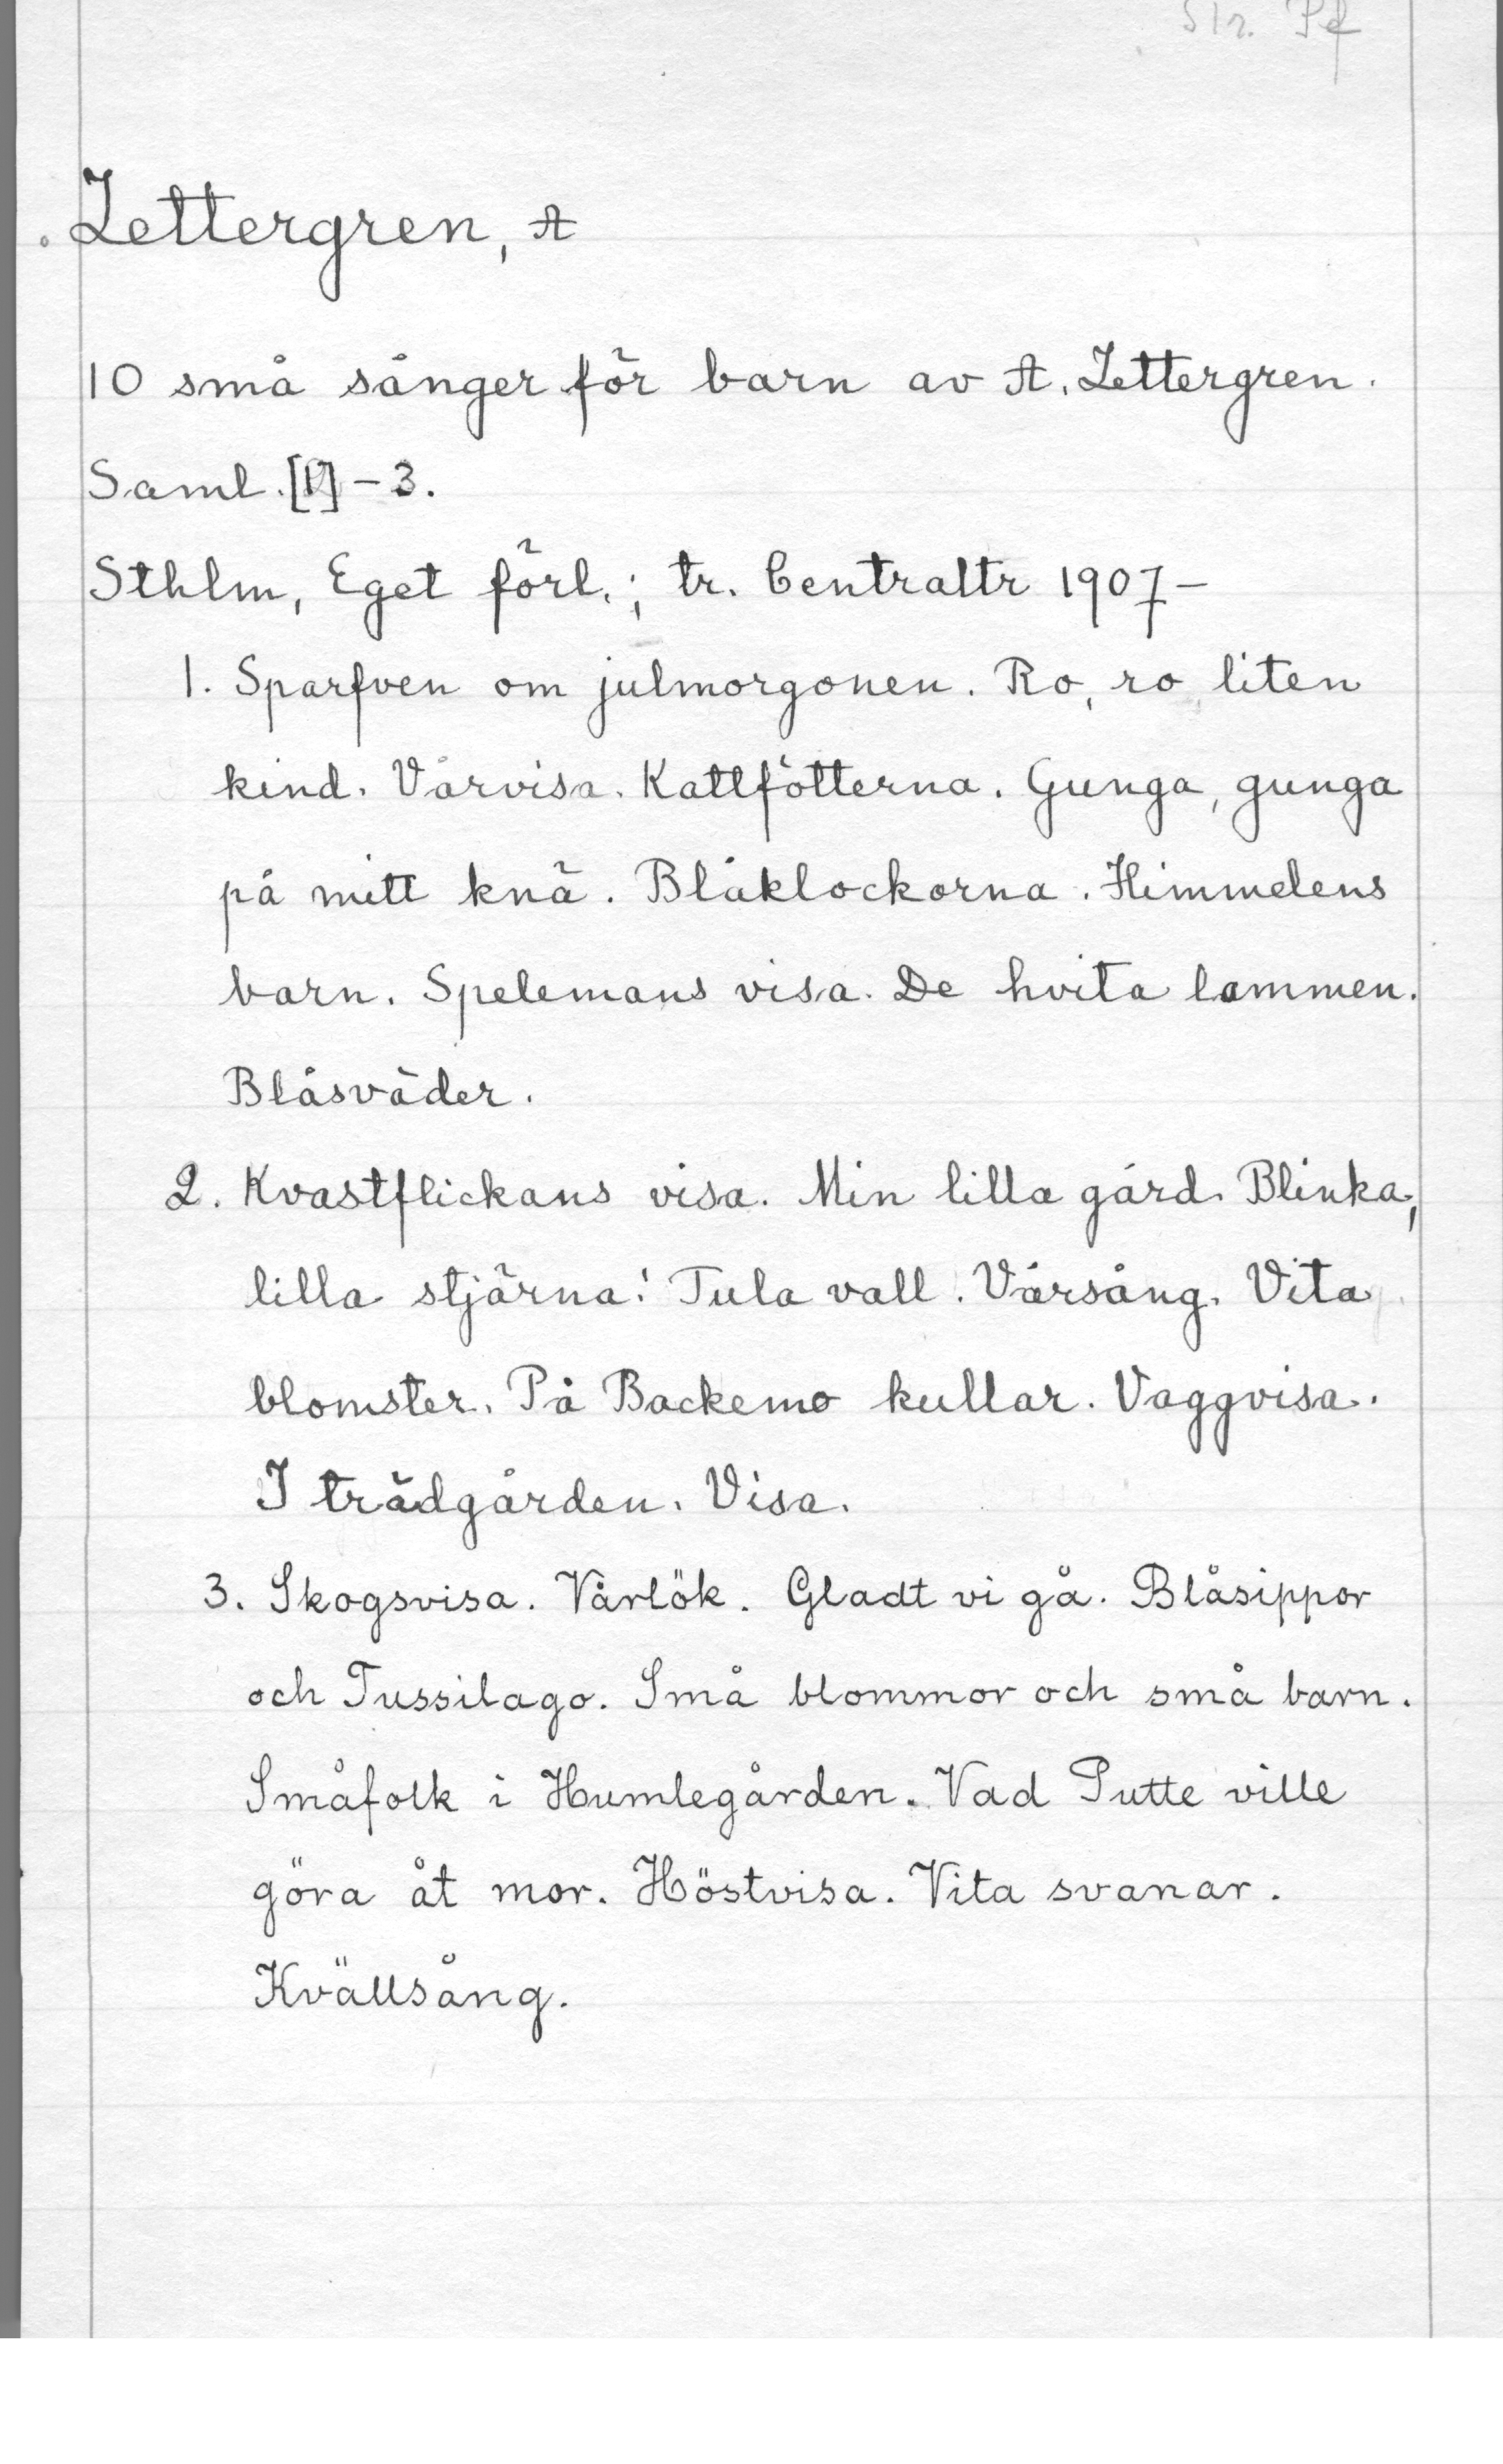 Str. Pf
Zettergren, A
10 små sånger för barn av A. Zettergren.
Saml. [1]-3.
Sthlm, Eget förl.; tr. Centraltr 1907-
1. Sparfven om julmorgonen. Ro, ro, liten
kind. Vårvisa. Kattfötterna. Gunga, gunga
på mitt knä. Blåklockorna. Himmelens
barn. Spelemans visa. De hvita lammen.
Blåsväder.
2. Kvastflickans visa. Min lilla gård. Blinka,
lilla stjärna! Tula vall. Vårsång. Vita
blomster. På Backemo kullar. Vaggvisa.
I trädgården. Visa.
3. Skogsvisa. Vårlök. Gladt vi gå. Blåsippor
och Tussilago. Små blommor och små barn.
Småfolk i Humlegården. Vad Putte ville
göra åt mor. Höstvisa. Vita svanar.
Kvällsång.